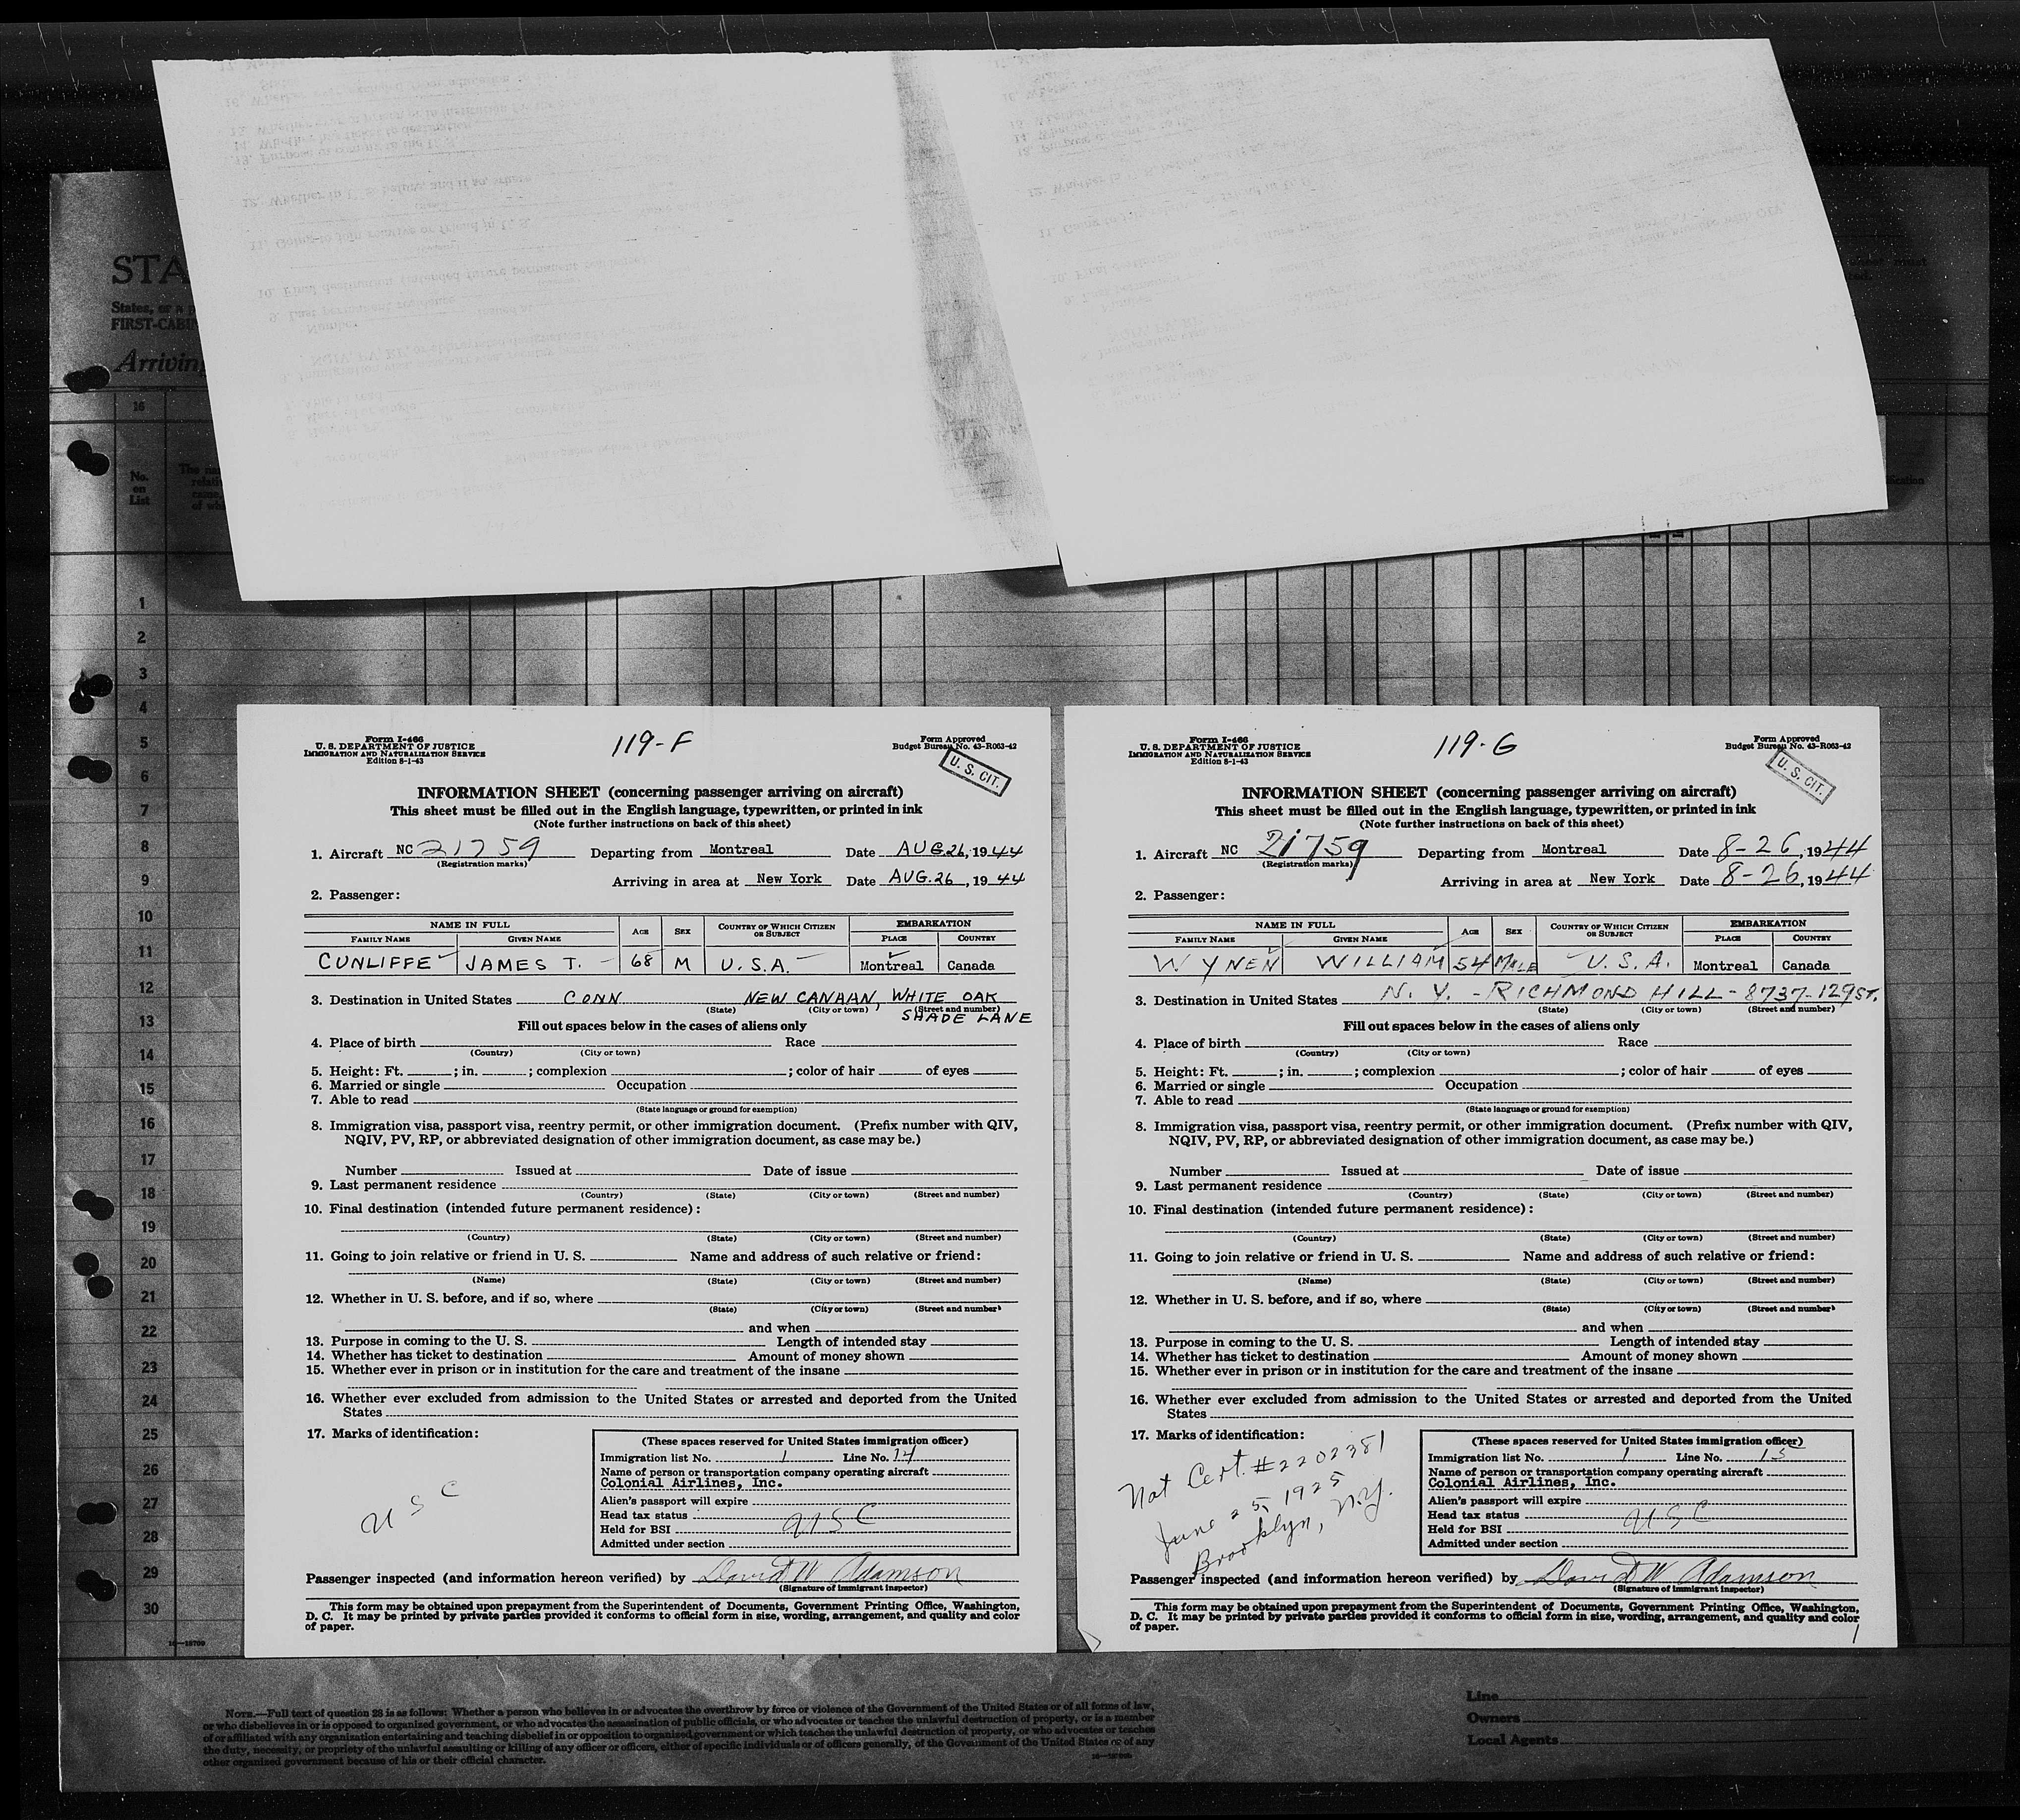 STA
States, or a p
FIRST-CABI
Arriving
16
No.
on
List
1
2
3
4
5
6
7
8
9
10
11
12
13
14
15
16
17
18
19
20
21
22
23
24
25
26
27
28
29
30
Form I-466
U. S. DEPARTMENT OF JUSTICE
IMMIGRATION AND NATURALIZATION SERVICE
Edition 8-1-43
119-F
Form Approved
Budget Bureau No. 43-R063-42
U. S. CIT.
INFORMATION SHEET (concerning passenger arriving on aircraft)
This sheet must be filled out in the English language, typewritten, or printed in ink
(Note further instructions on back of this sheet)
1. Aircraft NC 21759 Departing from Montreal Date AUG.26, 1944
(Registration marks)
Arriving in area at New York Date AUG.26, 1944
2. Passenger:
NAME IN FULL AGE SEX COUNTRY OF WHICH CITIZEN OR SUBJECT EMBARKATION
FAMILY NAME GIVEN NAME PLACE COUNTRY
CUNLIFFE JAMES T. 68 M U.S.A. Montreal Canada
3. Destination in United States CONN NEW CANAAN, WHITE OAK
(State) (City or town) (Street and number)
SHADE LANE
Fill out spaces below in the cases of aliens only
4. Place of birth Race
(Country) (City or town)
5. Height: Ft. ; in. ; complexion ; color of hair of eyes
6. Married or single Occupation
7. Able to read
(State language or ground for exemption)
8. Immigration visa, passport visa, reentry permit, or other immigration document. (Prefix number with QIV,
NQIV, PV, RP, or abbreviated designation of other immigration document, as case may be.)
Number Issued at Date of issue
9. Last permanent residence
(Country) (State) (City or town) (Street and number)
10. Final destination (intended future permanent residence):
(Country) (State) (City or town) (Street and number)
11. Going to join relative or friend in U. S. Name and address of such relative or friend:
(Name) (State) (City or town) (Street and number)
12. Whether in U. S. before, and if so, where
(State) (City or town) (Street and number)
and when
13. Purpose in coming to the U. S. Length of intended stay
14. Whether has ticket to destination Amount of money shown
15. Whether ever in prison or in institution for the care and treatment of the insane
16. Whether ever excluded from admission to the United States or arrested and deported from the United
States
17. Marks of identification:
USC
(These spaces reserved for United States immigration officer)
Immigration list No. 1 Line No. 14
Name of person or transportation company operating aircraft
Colonial Airlines, Inc.
Alien's passport will expire
Head tax status USC
Held for BSI
Admitted under section
Passenger inspected (and information hereon verified) by David W Adamson
(Signature of immigrant inspector)
This form may be obtained upon prepayment from the Superintendent of Documents, Government Printing Office, Washington,
D. C. It may be printed by private parties provided it conforms to official form in size, wording, arrangement, and quality and color
of paper.
Form I-466
U. S. DEPARTMENT OF JUSTICE
IMMIGRATION AND NATURALIZATION SERVICE
Edition 8-1-43
119-G
Form Approved
Budget Bureau No. 43-R063-42
U. S. CIT.
INFORMATION SHEET (concerning passenger arriving on aircraft)
This sheet must be filled out in the English language, typewritten, or printed in ink
(Note further instructions on back of this sheet)
1. Aircraft NC 21759 Departing from Montreal Date 8-26, 1944
(Registration marks)
Arriving in area at New York Date 8-26, 1944
2. Passenger:
NAME IN FULL AGE SEX COUNTRY OF WHICH CITIZEN OR SUBJECT EMBARKATION
FAMILY NAME GIVEN NAME PLACE COUNTRY
WYNEN WILLIAM 54 MALE U.S.A. Montreal Canada
3. Destination in United States N. Y. - RICHMOND HILL - 8737-129 ST.
(State) (City or town) (Street and number)
Fill out spaces below in the cases of aliens only
4. Place of birth Race
(Country) (City or town)
5. Height: Ft. ; in. ; complexion ; color of hair of eyes
6. Married or single Occupation
7. Able to read
(State language or ground for exemption)
8. Immigration visa, passport visa, reentry permit, or other immigration document. (Prefix number with QIV,
NQIV, PV, RP, or abbreviated designation of other immigration document, as case may be.)
Number Issued at Date of issue
9. Last permanent residence
(Country) (State) (City or town) (Street and number)
10. Final destination (intended future permanent residence):
(Country) (State) (City or town) (Street and number)
11. Going to join relative or friend in U. S. Name and address of such relative or friend:
(Name) (State) (City or town) (Street and number)
12. Whether in U. S. before, and if so, where
(State) (City or town) (Street and number)
and when
13. Purpose in coming to the U. S. Length of intended stay
14. Whether has ticket to destination Amount of money shown
15. Whether ever in prison or in institution for the care and treatment of the insane
16. Whether ever excluded from admission to the United States or arrested and deported from the United
States
17. Marks of identification:
Nat Cert. #2202381
June 25, 1925
Brooklyn, N.Y.
(These spaces reserved for United States immigration officer)
Immigration list No. 1 Line No. 15
Name of person or transportation company operating aircraft
Colonial Airlines, Inc.
Alien's passport will expire
Head tax status USC
Held for BSI
Admitted under section
Passenger inspected (and information hereon verified) by David W Adamson
(Signature of immigrant inspector)
This form may be obtained upon prepayment from the Superintendent of Documents, Government Printing Office, Washington,
D. C. It may be printed by private parties provided it conforms to official form in size, wording, arrangement, and quality and color
of paper.
NOTE.—Full text of question 28 is as follows: Whether a person who believes in or advocates the overthrow by force or violence of the Government of the United States or of all forms of law,
or who disbelieves in or is opposed to organized government, or who advocates the assassination of public officials, or who advocates or teaches the unlawful destruction of property, or is a member
of or affiliated with any organization entertaining and teaching disbelief in or opposition to organized government or which teaches the unlawful destruction of property, or who advocates or teaches
the duty, necessity, or propriety of the unlawful assaulting or killing of any officer or officers, either of specific individuals or of officers generally, of the Government of the United States or of any
other organized government because of his or their official character.
Line
Owners
Local Agents